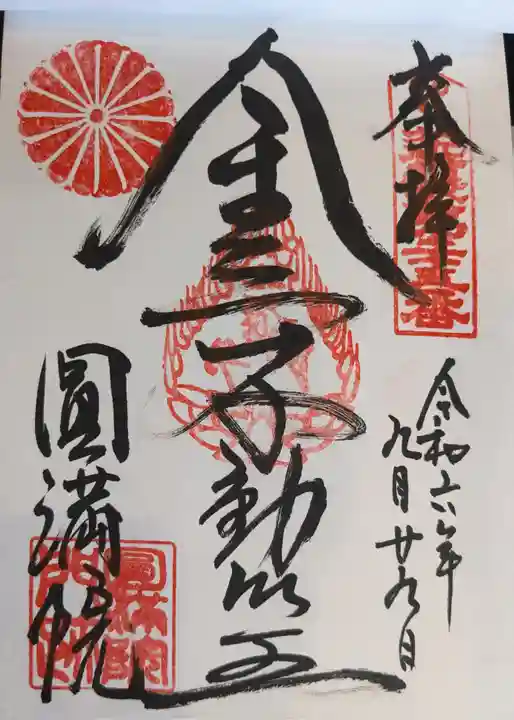 奉拝
令和六年
九月廿九日
金不動明王
圓満院
圓満院